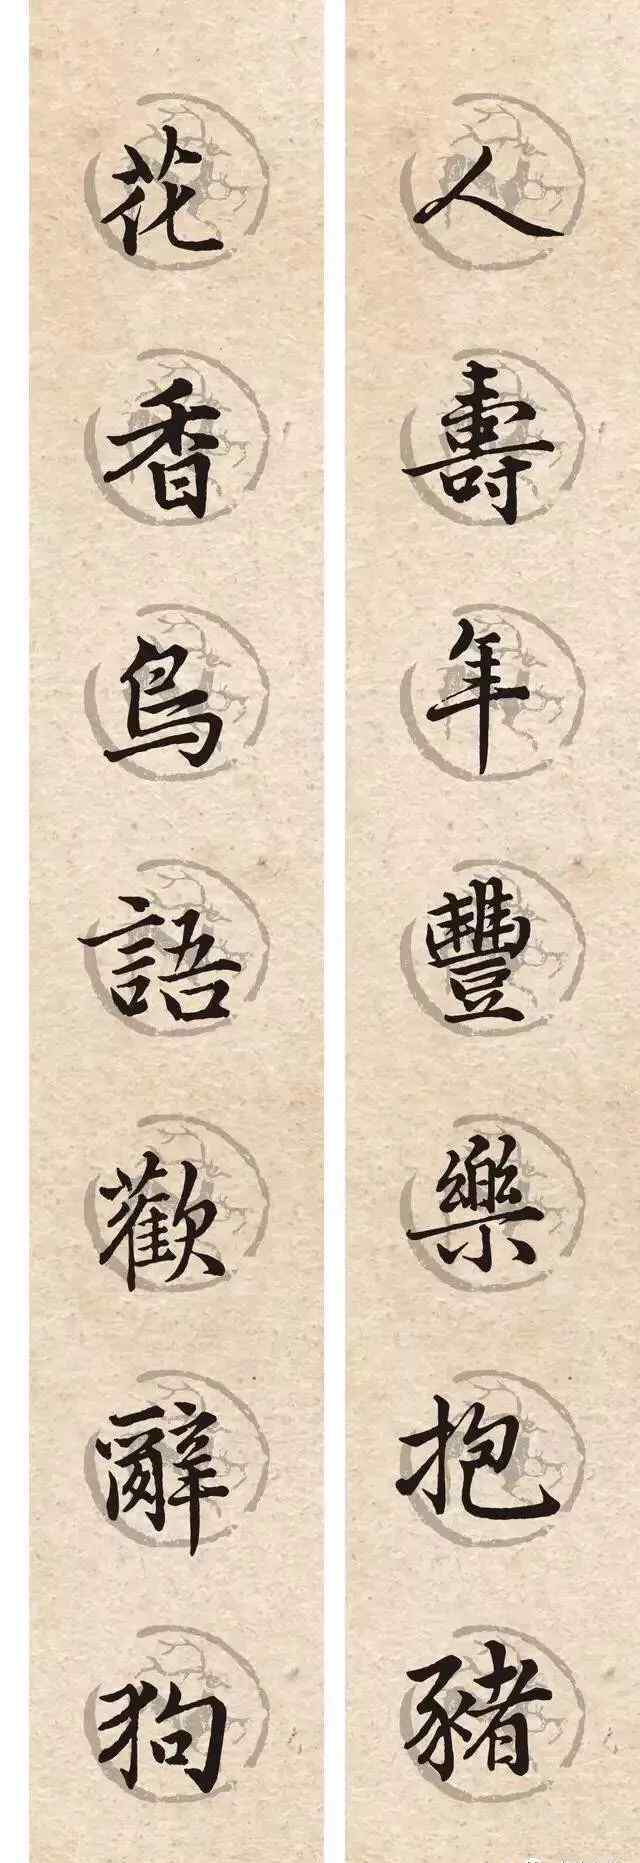 人壽年豐樂抱豬
花香鳥語歡辭狗